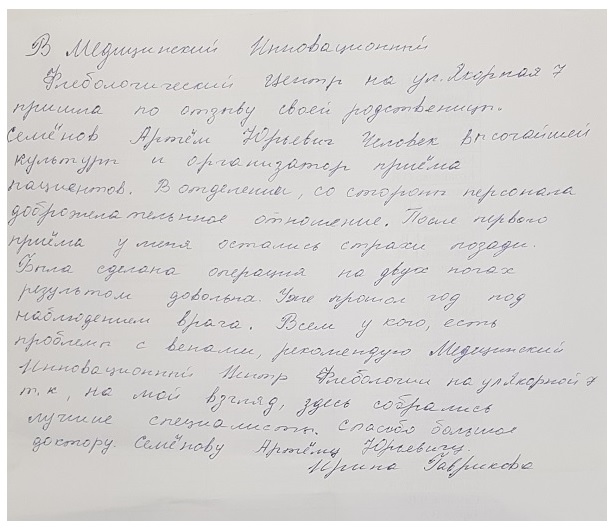 В Медицинский Инновационный
Флебологический Центр на ул. Якорная 7
пришла по отзыву своей родственицы.
Семёнов Артём Юрьевич Человек высочайшей
культуры и организатор приёма
пациентов. В отделении, со стороны персонала
доброжелательнное отношение. После первого
приёма у меня остались страхи позади.
Была сделана операция на двух ногах
результатом довольна. Уже прошёл год под
наблюдением врача. Всем у кого, есть
проблемы с венами, рекомендую Медецинский
Инновационный Центр Флебологии на ул Якорной 7
т.к, на мой взгляд, здесь собрались
лучшие специалисты. Спасибо большое
доктору. Семёнову Артёму Юрьевичу.
Ирина Гаврикова